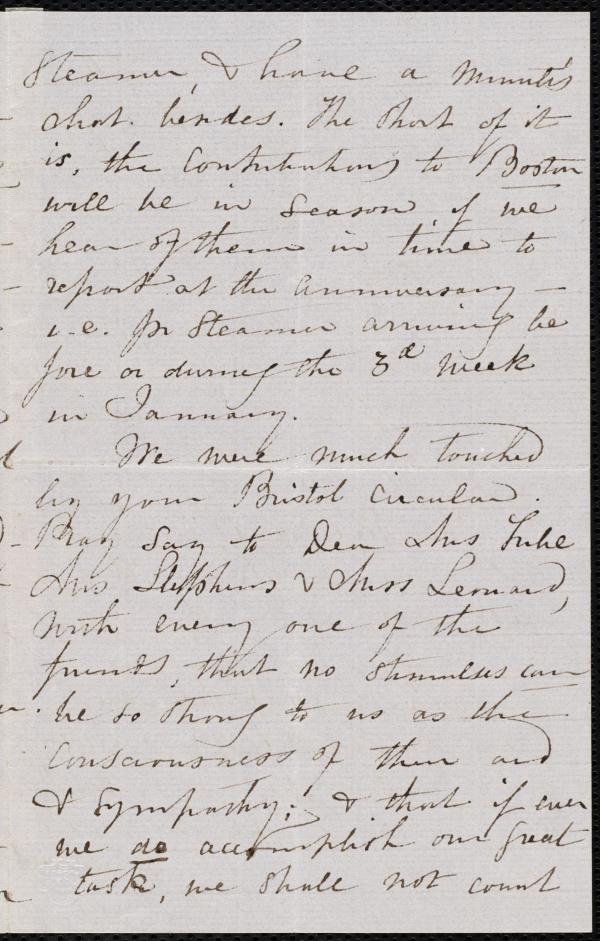 Steamer, & have a minute's
chat besides. The short of it
is, the Contributions to Boston
will be in season, if we
hear of them in time to
report at the anniversary –
i.e. pr Steamer arriving be
fore or during the 3d week
in January.
We were much touched
by your Bristol Circular.
Pray say to Dear Mrs
Mrs Stephens & Miss Leonard,
with every one of the
friends, that no stimulus can
be so strong to us as the
consciousness of their aid
& sympathy; & that if ever
we do accomplish our great
task, we shall not count